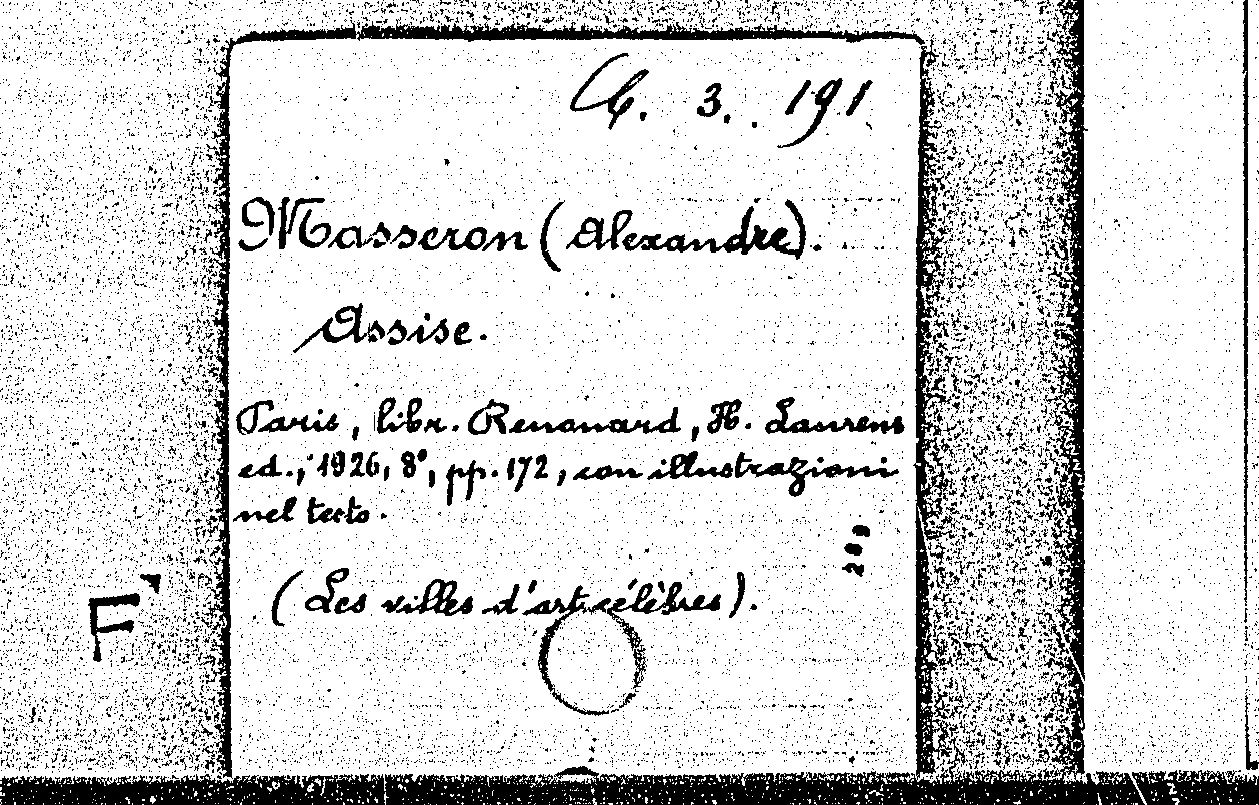 6. 3. 191
Masseron (Alexandre).
Assise.
Paris, libr. Renouard, H. Laurens
ed., 1926, 8°, pp. 172, con illustrazioni
nel testo.
289
(Les villes d'art célèbres).
F